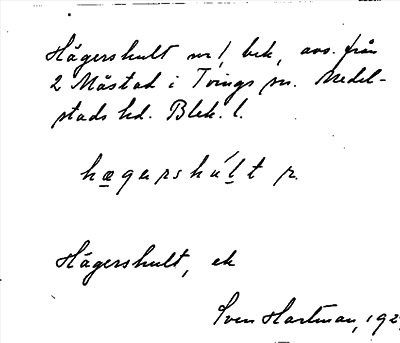 Hägershult nr 1, bek, avs. från
2 Måstad i Tvings sn. Medel-
stads hd. Blek. l.
hægərshúlt r.
Hägershult, ek
Sven Hartman, 192